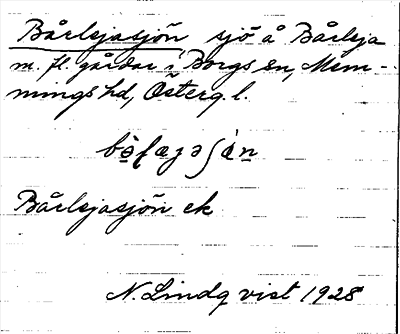 Bårlsjasjön sjö å Bårlsja
m. fl. gårdar i Borgs sn, Mem-
mings hd, Österg. l.
Bårlsjasjön ek
N. Lindqvist 1928